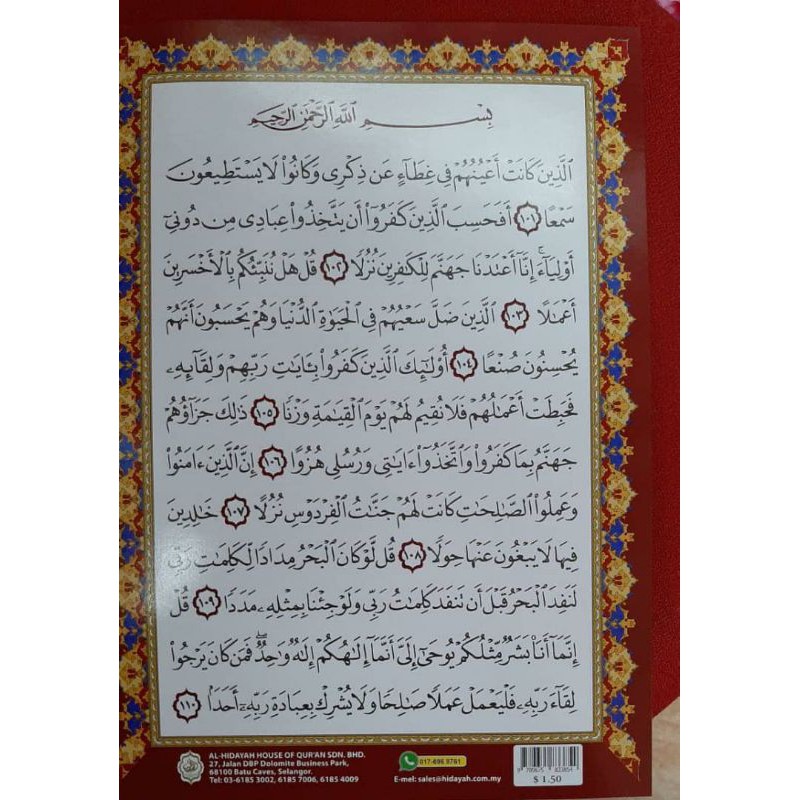 بِسْمِ اللَّهِ الرَّحْمَٰنِ الرَّحِيمِ
الَّذِينَ كَانَتْ أَعْيُنُهُمْ فِي غِطَاءٍ عَن ذِكْرِي وَكَانُوا لَا يَسْتَطِيعُونَ
سَمْعًا ١٠١ أَفَحَسِبَ الَّذِينَ كَفَرُوا أَن يَتَّخِذُوا عِبَادِي مِن دُونِي
أَوْلِيَاءَ ۚ إِنَّا أَعْتَدْنَا جَهَنَّمَ لِلْكَافِرِينَ نُزُلًا ١٠٢ قُلْ هَلْ نُنَبِّئُكُم بِالْأَخْسَرِينَ
أَعْمَالًا ١٠٣ الَّذِينَ ضَلَّ سَعْيُهُمْ فِي الْحَيَاةِ الدُّنْيَا وَهُمْ يَحْسَبُونَ أَنَّهُمْ
يُحْسِنُونَ صُنْعًا ١٠٤ أُولَٰئِكَ الَّذِينَ كَفَرُوا بِآيَاتِ رَبِّهِمْ وَلِقَائِهِ
فَحَبِطَتْ أَعْمَالُهُمْ فَلَا نُقِيمُ لَهُمْ يَوْمَ الْقِيَامَةِ وَزْنًا ١٠٥ ذَٰلِكَ جَزَاؤُهُمْ
جَهَنَّمُ بِمَا كَفَرُوا وَاتَّخَذُوا آيَاتِي وَرُسُلِي هُزُوًا ١٠٦ إِنَّ الَّذِينَ آمَنُوا
وَعَمِلُوا الصَّالِحَاتِ كَانَتْ لَهُمْ جَنَّاتُ الْفِرْدَوْسِ نُزُلًا ١٠٧ خَالِدِينَ
فِيهَا لَا يَبْغُونَ عَنْهَا حِوَلًا ١٠٨ قُل لَّوْ كَانَ الْبَحْرُ مِدَادًا لِّكَلِمَاتِ رَبِّي
لَنَفِدَ الْبَحْرُ قَبْلَ أَن تَنفَدَ كَلِمَاتُ رَبِّي وَلَوْ جِئْنَا بِمِثْلِهِ مَدَدًا ١٠٩ قُلْ
إِنَّمَا أَنَا بَشَرٌ مِّثْلُكُمْ يُوحَىٰ إِلَيَّ أَنَّمَا إِلَٰهُكُمْ إِلَٰهٌ وَاحِدٌ ۖ فَمَن كَانَ يَرْجُوا
لِقَاءَ رَبِّهِ فَلْيَعْمَلْ عَمَلًا صَالِحًا وَلَا يُشْرِكْ بِعِبَادَةِ رَبِّهِ أَحَدًا ١١٠
AL-HIDAYAH HOUSE OF QUR'AN SDN. BHD.
27, Jalan DBP Dolomite Business Park,
68100 Batu Caves, Selangor.
Tel: 03-6185 3002, 6185 7006, 6185 4009
017-696 8761
E-mel: sales@hidayah.com.my
$ 1.50